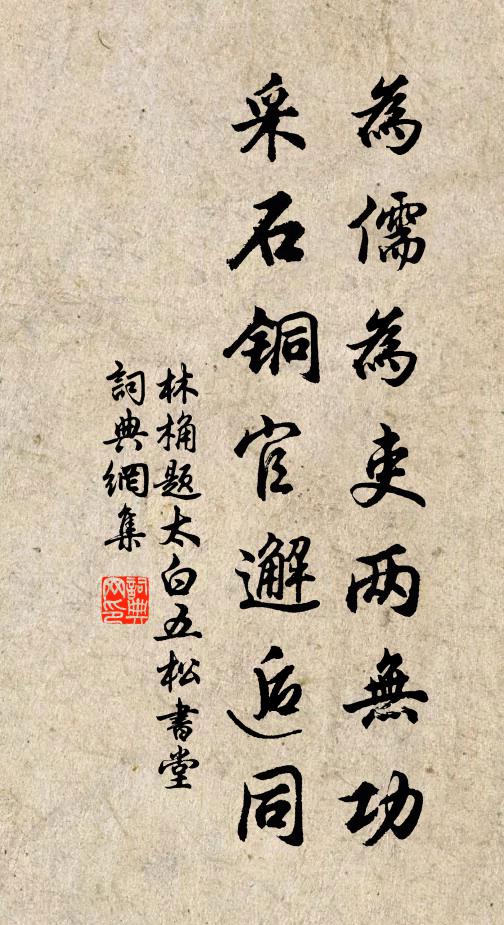 為儒為吏两無功
采石銅官邂逅同
林桷题太白五松書堂
詞典網集
詞典
网印